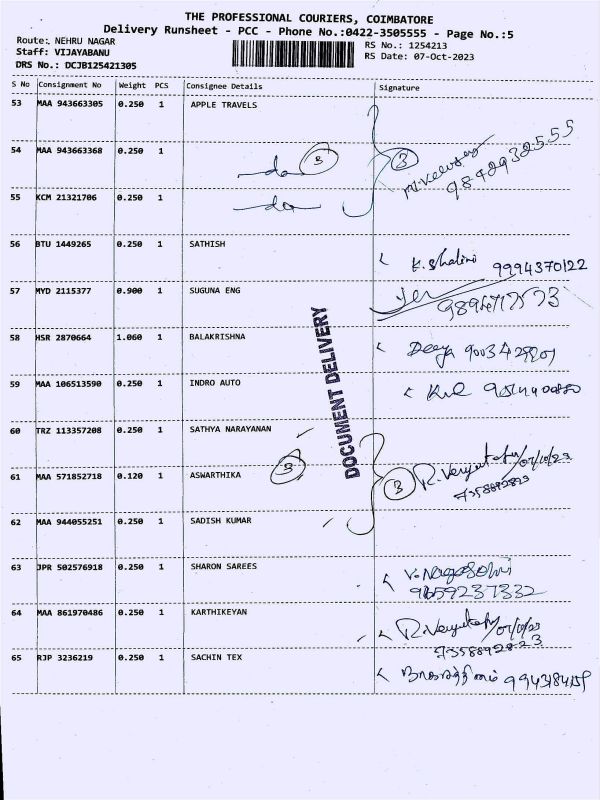 THE PROFESSIONAL COURIERS, COIMBATORE
Delivery Runsheet - PCC - Phone No.:0422-3505555 - Page No.:5
Route: NEHRU NAGAR
Staff: VIJAYABANU
DRS No.: DCJB125421305
RS No.: 1254213
RS Date: 07-Oct-2023
S No Consignment No Weight PCS Consignee Details Signature
53 MAA 943663305 0.250 1 APPLE TRAVELS
54 MAA 943663368 0.250 1 do 3 3
9842932555
55 KCM 21321706 0.250 1 do
56 BTU 1449265 0.250 1 SATHISH K. Shalini 9994370122
57 MYD 2115377 0.900 1 SUGUNA ENG
58 HSR 2870664 1.060 1 BALAKRISHNA
59 MAA 106513590 0.250 1 INDRO AUTO
DOCUMENT DELIVERY
60 TRZ 113357208 0.250 1 SATHYA NARAYANAN
61 MAA 571852718 0.120 1 ASWARTHIKA 3 3 07/10/23
7358892823
62 MAA 944055251 0.250 1 SADISH KUMAR
63 JPR 502576918 0.250 1 SHARON SAREES
9659237332
64 MAA 861970486 0.250 1 KARTHIKEYAN 07/10/23
7358892823
65 RJP 3236219 0.250 1 SACHIN TEX